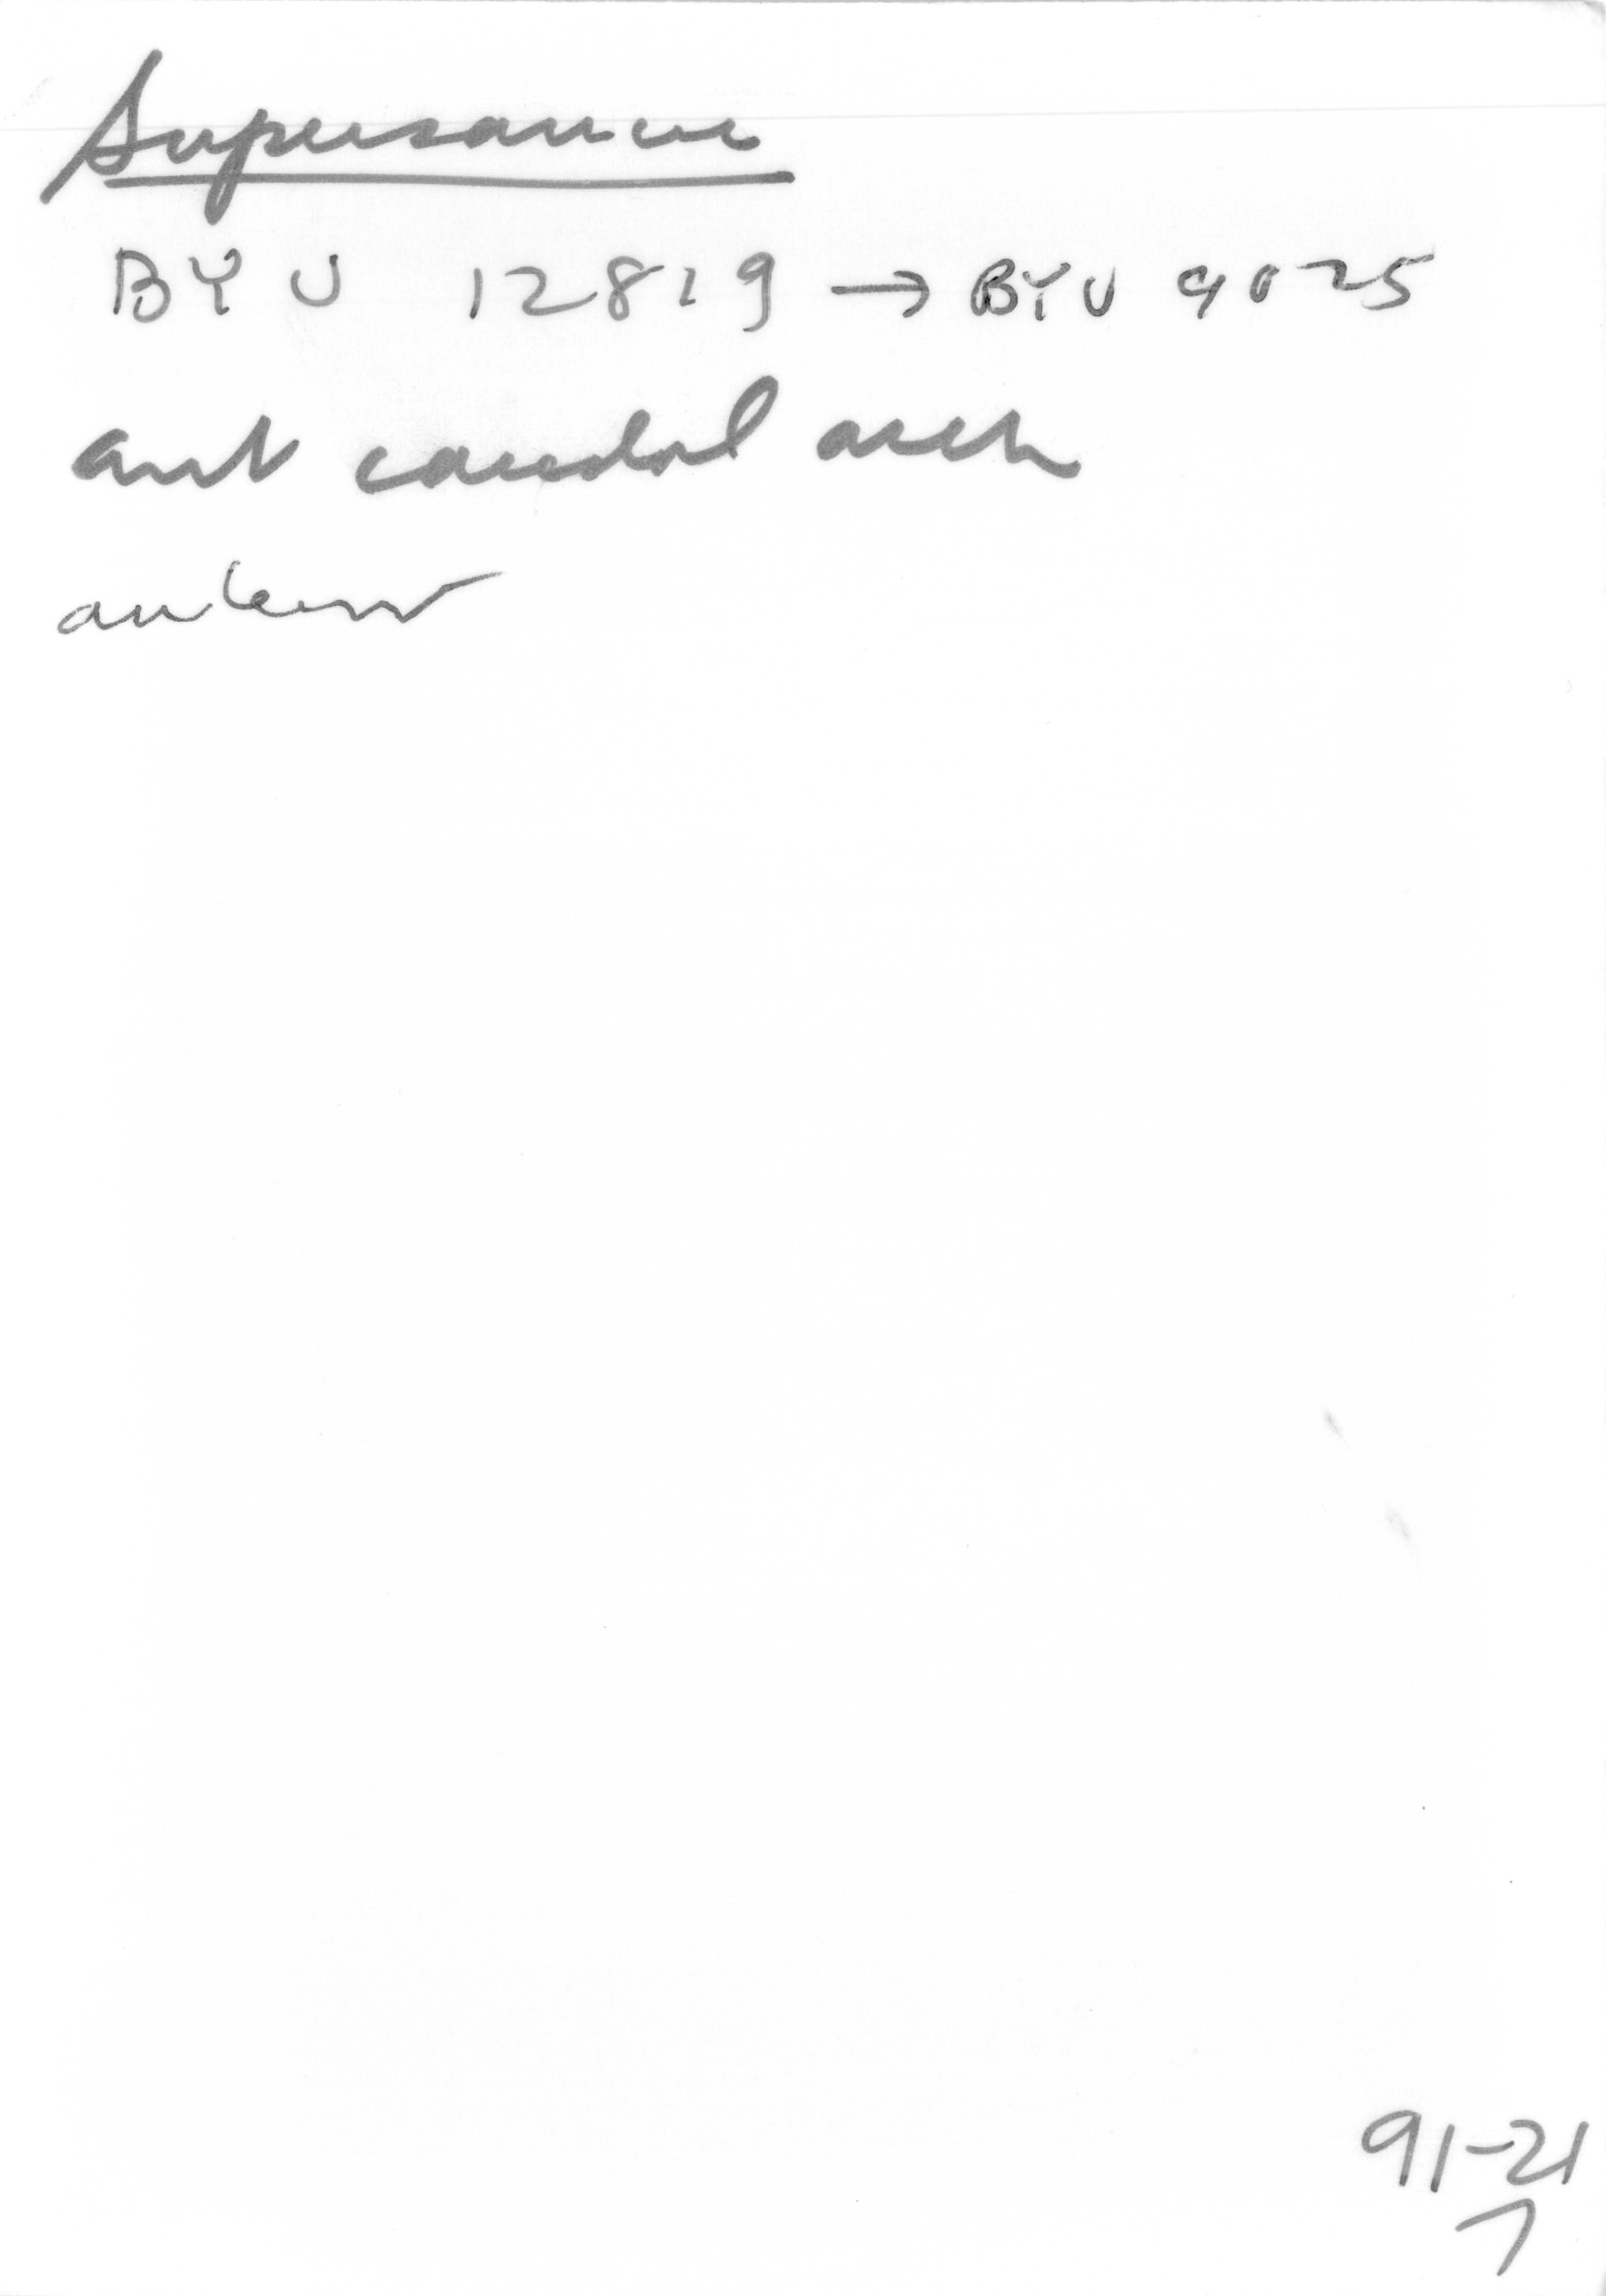 Supersaurus
BYU 12819 → BYU 9025
ant caudal arch
anterior
91-21
7